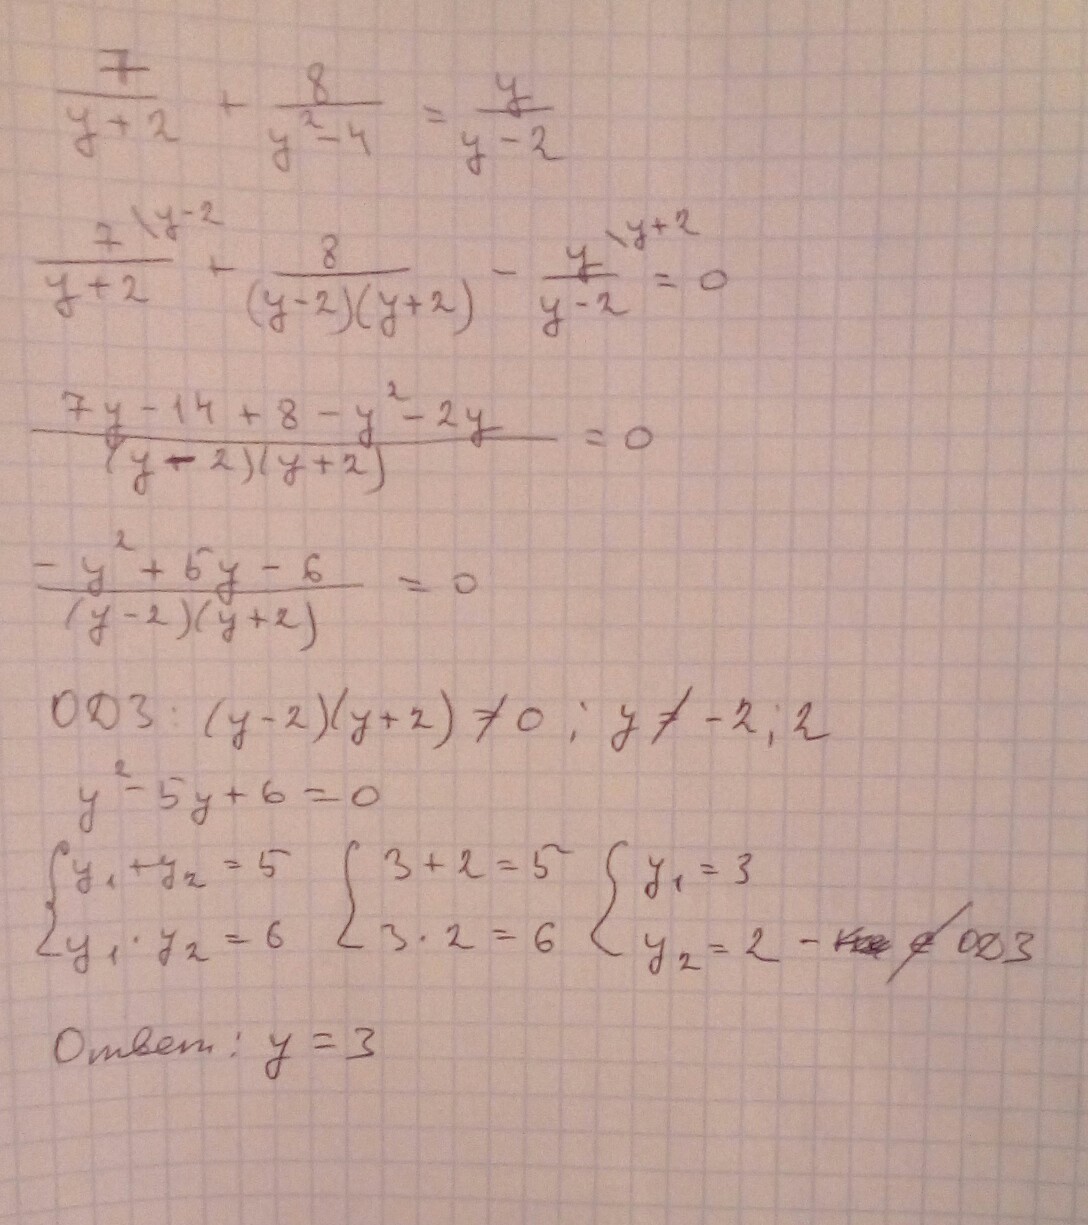 7/(y+2) + 8/(y²-4) = y/(y-2)
7\y-2/(y+2) + 8/((y-2)(y+2)) - y\y+2/(y-2) = 0
(7y-14+8-y²-2y)/((y-2)(y+2)) = 0
(-y²+5y-6)/((y-2)(y+2)) = 0
ОДЗ: (y-2)(y+2)≠0; y≠-2;2
y²-5y+6=0
{y₁+y₂=5 {3+2=5 {y₁=3
y₁·y₂=6 3·2=6 y₂=2 - ∉ ОДЗ
Ответ: y=3